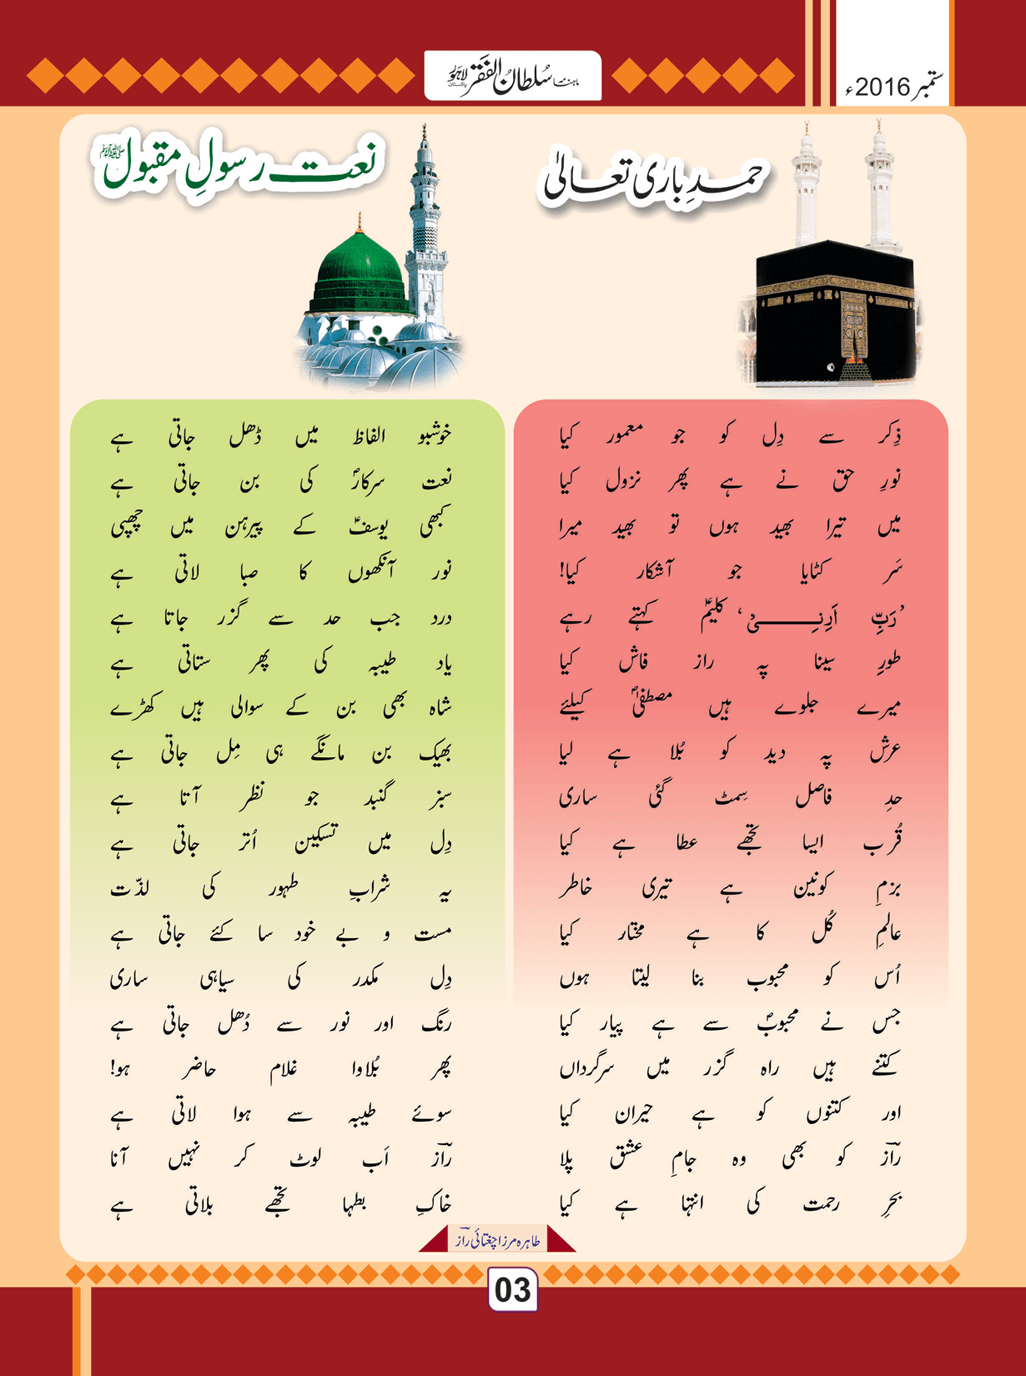 ستمبر 2016ء
ماہنامہ سُلطان الفقر لاہور پاکستان
حمدِ باری تعالیٰ
ذِکر سے دِل کو جو معمور کیا
نورِ حق نے ہے پھر نزول کیا
میں تیرا بھید ہوں تو بھید میرا
سَر کٹایا جو آشکار کیا!
’رَبِّ اَرِنِیْ‘ کلیمؑ کہتے رہے
طورِ سینا پہ راز فاش کیا
میرے جلوے ہیں مصطفیٰؐ کیلئے
عرش پہ دید کو بُلا ہے لیا
حدِ فاصل سِمٹ گئی ساری
قُرب ایسا تجھے عطا ہے کیا
بزمِ کونین ہے تیری خاطر
عالمِ کُل کا ہے مختار کیا
اُس کو محبوب بنا لیتا ہوں
جس نے محبوبؐ سے ہے پیار کیا
کتنے ہیں راہ گزر میں سرگرداں
اور کتنوں کو ہے حیران کیا
رازؔ کو بھی وہ جامِ عشق پلا
بحرِ رحمت کی انتہا ہے کیا
نعت رسولِ مقبول ﷺ
خوشبو الفاظ میں ڈھل جاتی ہے
نعت سرکارؐ کی بن جاتی ہے
کبھی یوسفؑ کے پیرہن میں چھپی
نور آنکھوں کا صبا لاتی ہے
درد جب حد سے گزر جاتا ہے
یاد طیبہ کی پھر ستاتی ہے
شاہ بھی بن کے سوالی ہیں کھڑے
بھیک بن مانگے ہی مِل جاتی ہے
سبز گنبد جو نظر آتا ہے
دِل میں تسکین اُتر جاتی ہے
یہ شرابِ طہور کی لذّت
مست و بے خود سا کئے جاتی ہے
دِل مکدر کی سیاہی ساری
رنگ اور نور سے دُھل جاتی ہے
پھر بُلاوا غلام حاضر ہو!
سوئے طیبہ سے ہوا لاتی ہے
رازؔ اَب لوٹ کر نہیں آنا
خاکِ بطہا تجھے بلاتی ہے
طاہرہ مرزا چغتائی رازؔ
03